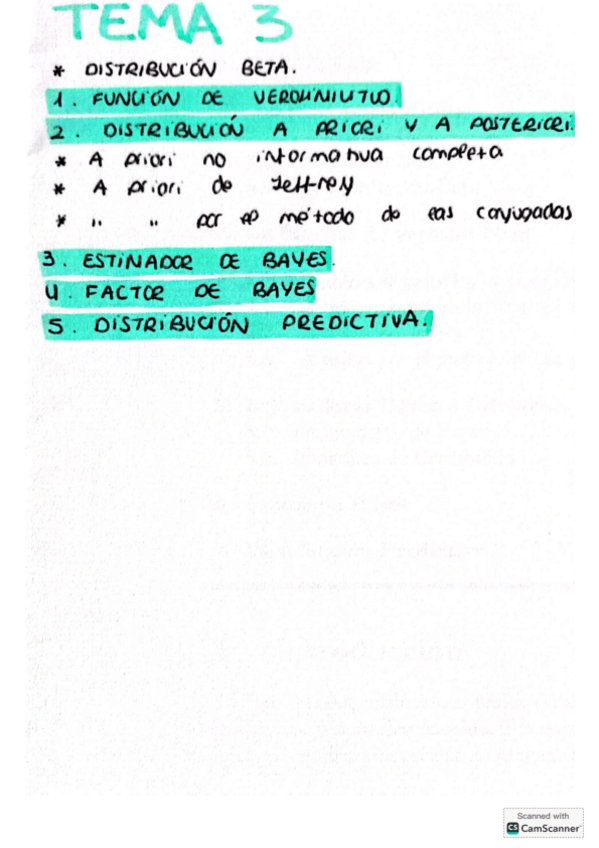 TEMA 3
* DISTRIBUCIÓN BETA.
1. FUNCIÓN DE VEROSIMILITUD.
2. DISTRIBUCIÓN A PRIORI Y A POSTERIORI.
* A priori no informativa completa
* A priori de Jeffrey
* " " por el método de las conjugadas
3. ESTIMADOR DE BAYES.
4. FACTOR DE BAYES
5. DISTRIBUCIÓN PREDICTIVA.
Scanned with
CS CamScanner